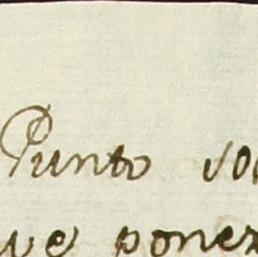 Punto so
ue ponez